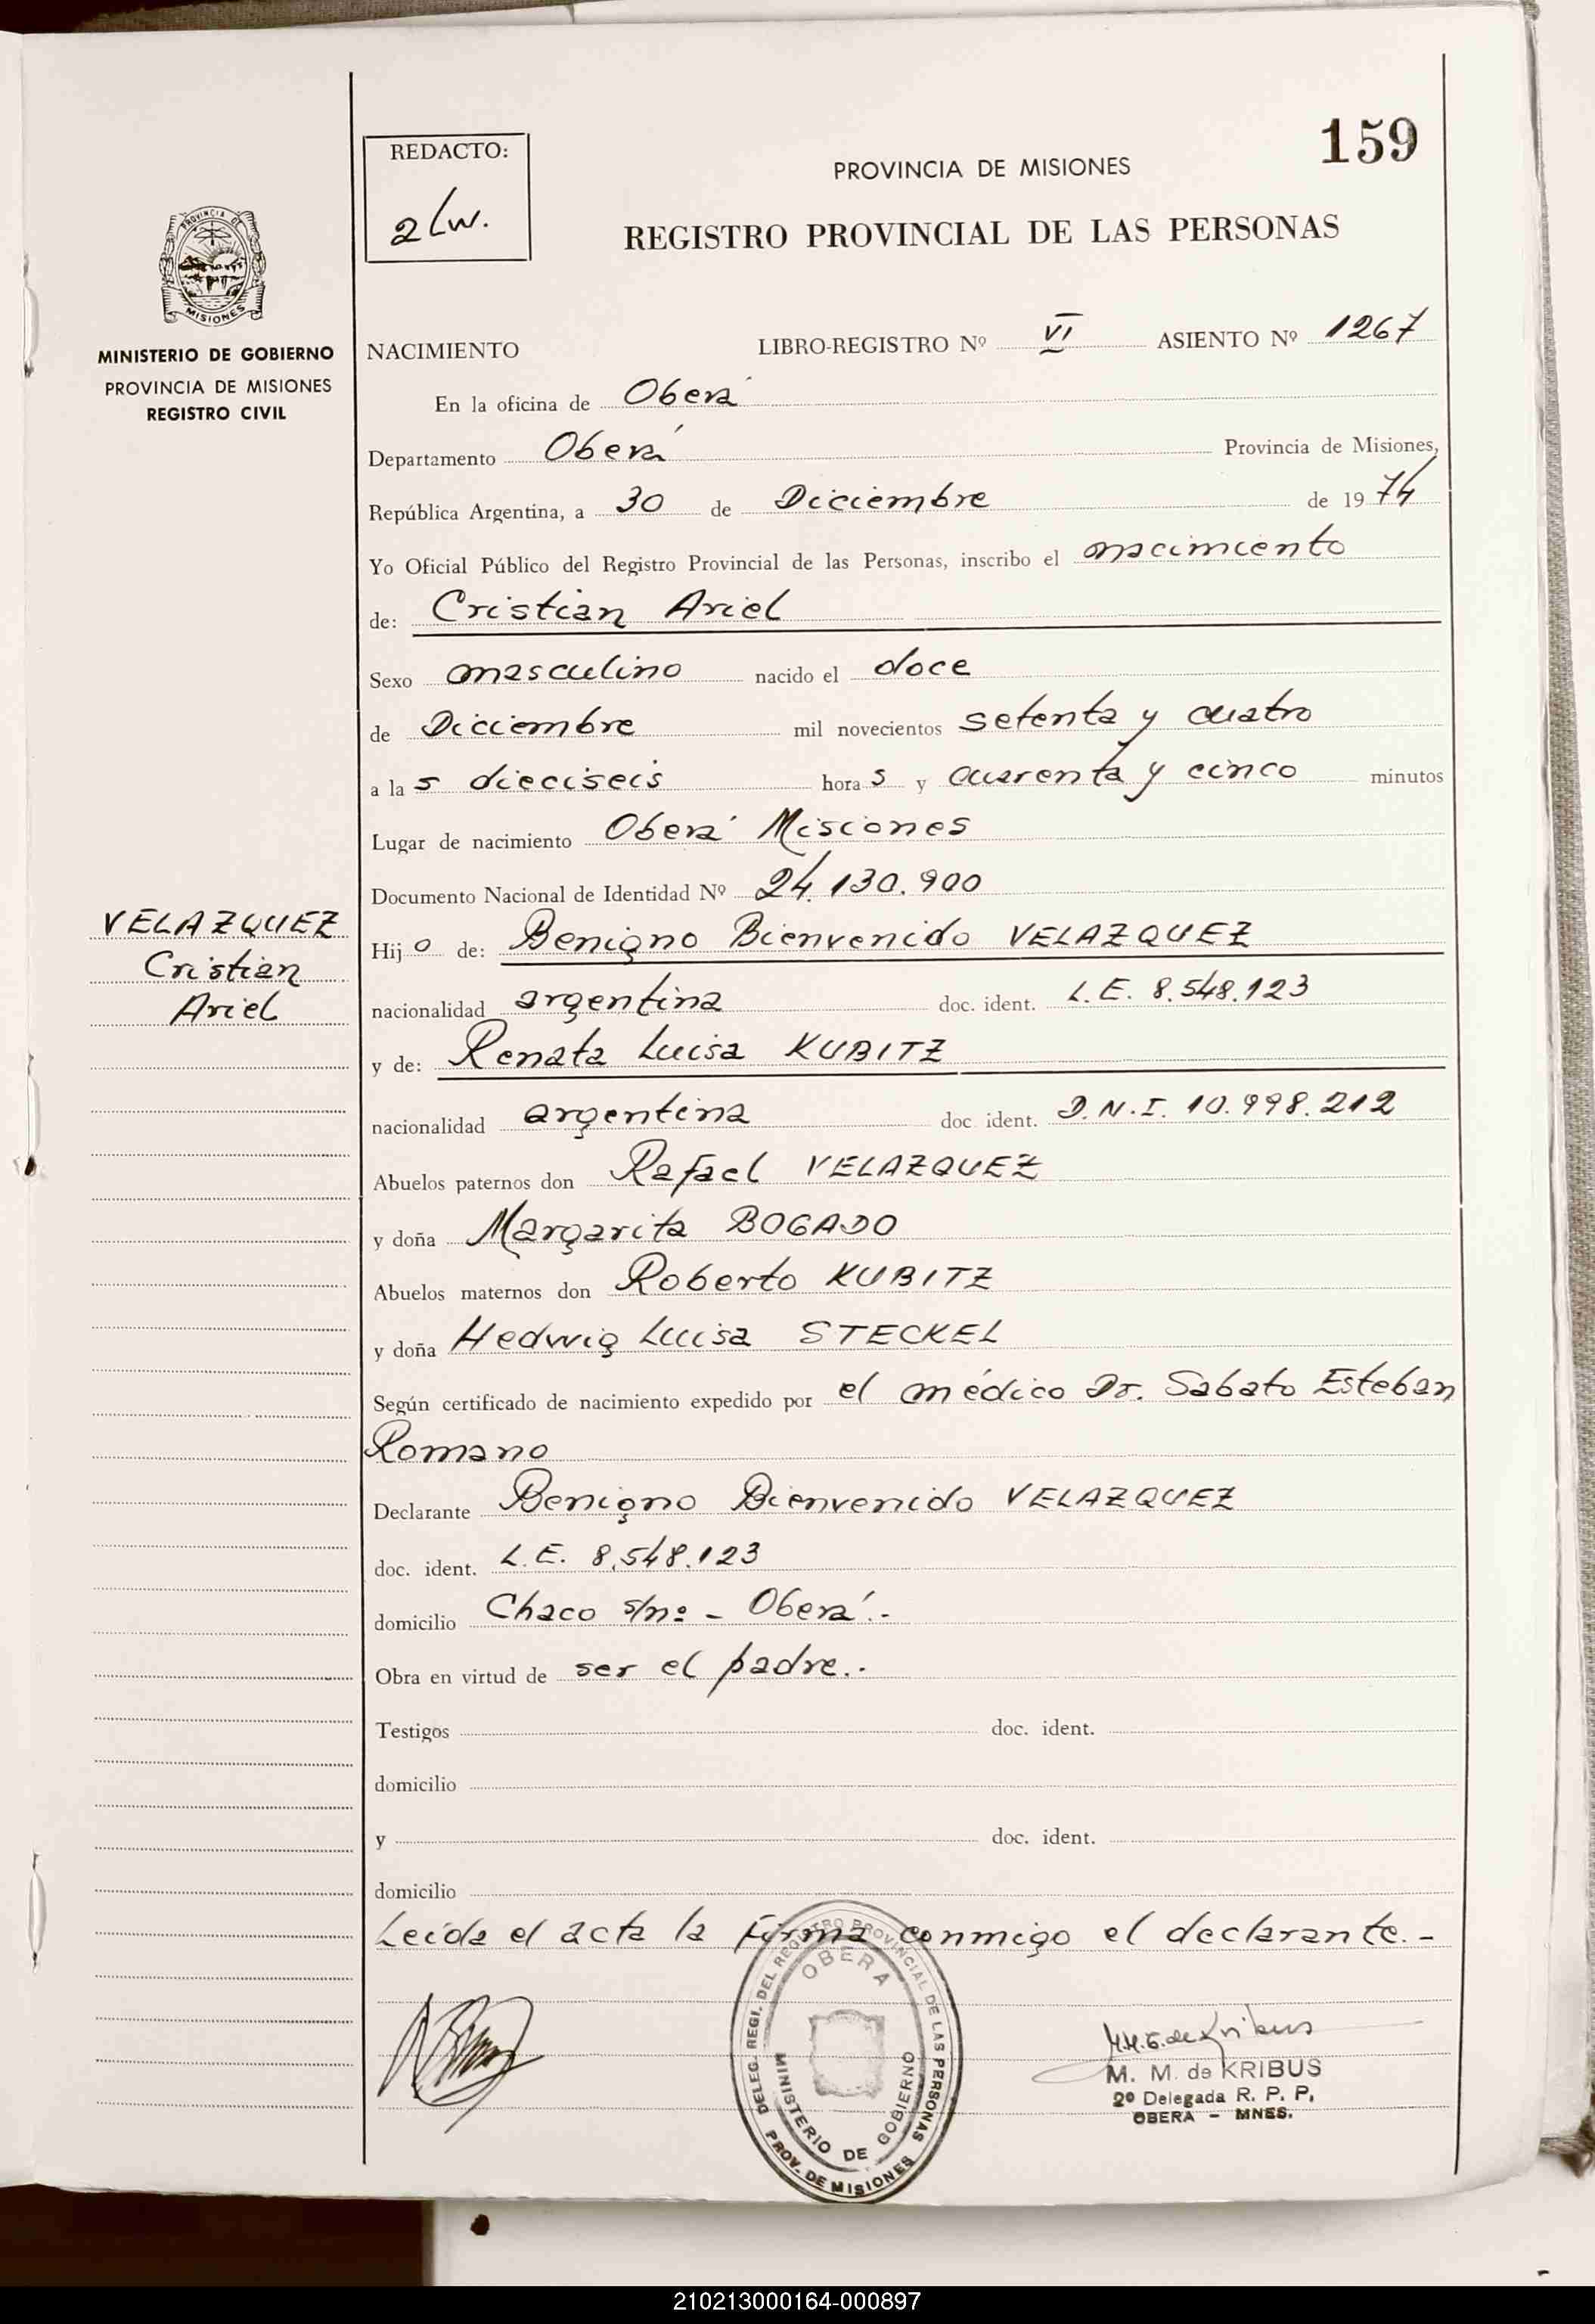 159
REDACTO:
PROVINCIA DE MISIONES
REGISTRO PROVINCIAL DE LAS PERSONAS
PROVINCIA DE
MISIONES
MINISTERIO DE GOBIERNO
PROVINCIA DE MISIONES
REGISTRO CIVIL
NACIMIENTO LIBRO-REGISTRO Nº VI ASIENTO Nº 1267
En la oficina de Oberá
Departamento Oberá Provincia de Misiones,
República Argentina, a 30 de Diciembre de 19 74
Yo Oficial Público del Registro Provincial de las Personas, inscribo el nacimiento
de: Cristian Ariel
Sexo masculino nacido el doce
de Diciembre mil novecientos setenta y cuatro
a la s dieciseis hora s y cuarenta y cinco minutos
Lugar de nacimiento Oberá Misiones
Documento Nacional de Identidad Nº 24.130.900
VELAZQUEZ
Cristian
Ariel
Hij o de: Benigno Bienvenido VELAZQUEZ
nacionalidad argentina doc. ident. L.E. 8.548.123
y de: Renata Luisa KUBITZ
nacionalidad argentina doc. ident. D.N.I. 10.998.212
Abuelos paternos don Rafael VELAZQUEZ
y doña Margarita BOGADO
Abuelos maternos don Roberto KUBITZ
y doña Hedwig Luisa STECKEL
Según certificado de nacimiento expedido por el médico Dr. Sabato Esteban
Romano
Declarante Benigno Bienvenido VELAZQUEZ
doc. ident. L.E. 8.548.123
domicilio Chaco s/nº - Oberá.-
Obra en virtud de ser el padre..
Testigos doc. ident.
domicilio
y doc. ident.
domicilio
Leída el acta la firma conmigo el declarante.-
DELEG. REGI. DEL REGISTRO PROVINCIAL DE LAS PERSONAS
OBERA
MINISTERIO DE GOBIERNO
PROV. DE MISIONES
M. M. de KRIBUS
2º Delegada R. P. P.
OBERA - MNES.
210213000164-000897